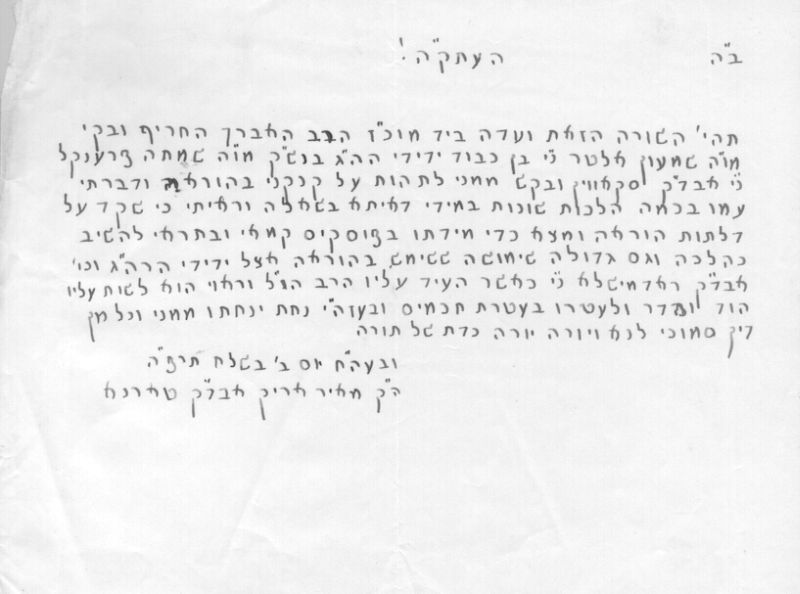 ב"ה העתק"ה!
תהי' השורה הזאת ועדה ביד מוכ"ז הרב האברך החריף ובקי
מו"ה שמעון אלטר נ"י בן כבוד ידידי הה"ג בנש"ק מו"ה שמחה פרענקל
נ"י אבד"ק סקאווין ובקש ממני לתהות על קנקני בהוראה ודברתי
עמו בכמה הלכות שונות במידי דאיתא בשאלה וראיתי כי שקד על
דלתות הוראה ומצא כדי מידתו בפוסקים קמאי ובתראי להשיב
כהלכה וגם גדולה שימושה ששימש בהוראה אצל ידידי הרה"ג וכו'
אבד"ק ראדמישלא נ"י כאשר העיד עליו הרב הנ"ל וראוי הוא לשות עליו
הוד והדר ולעטרו בעטרת חכמים ובעזה"י נחת ינחתו ממני וכל מן
דין סמוכי לנא ויורה יורה כדת של תורה
ובעה"ח יום ב' בשלח תרפ"ה
ה"ק מאיר אריק אבד"ק טארנא